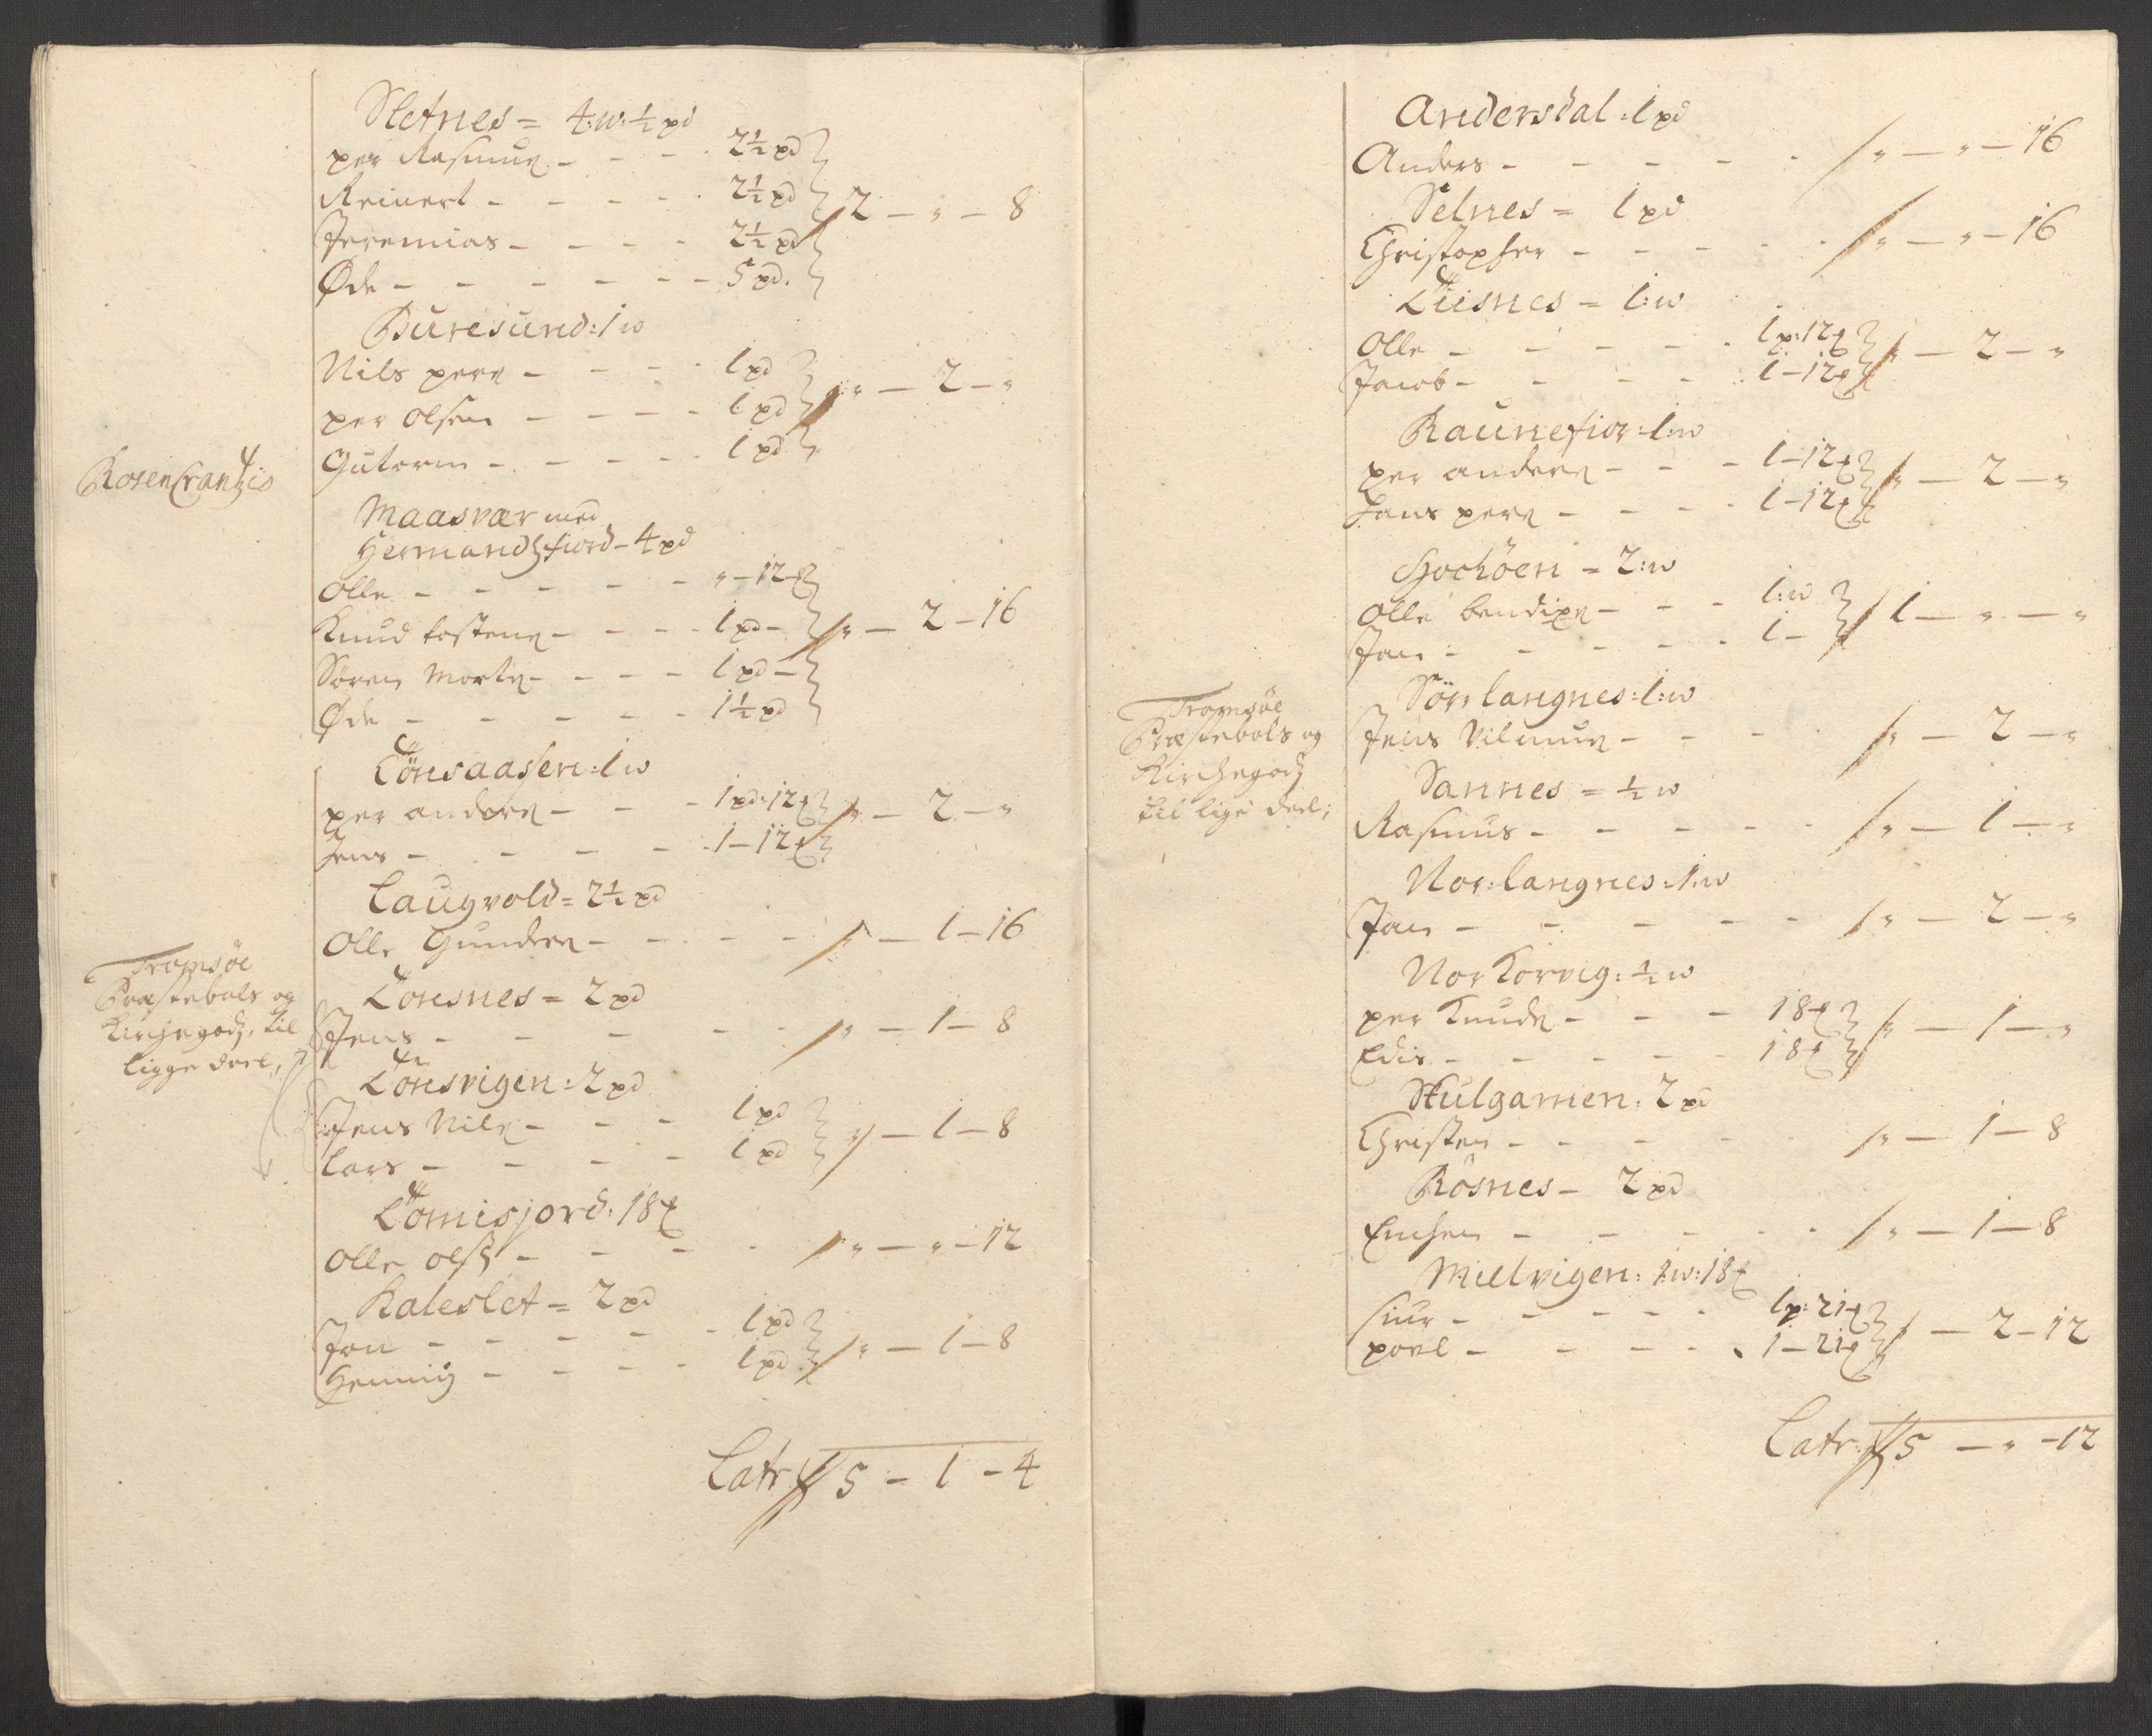 Sletnes = 4:w: ½ pd
per Rasmus - - - 2½ pd
Reinert - - - - 2½ pd 2 - " - 8
Jeremias - - - - 2½ pd
Øde - - - - - - 5 pd.
Buresund: 1 w
Nils pers - - - - 1 pd
per olsen - - - - 1 pd " - 2 - "
Gutorm - - - - - 1 pd
RosenCrantzis
Maasvær med
Hermandsfiord - 4 pd
Olle - - - - - " - 12
Knud tostens - - - - 1 pd - " - 2 - 16
Sören Morte - - - - 1 pd -
Øde - - - - - 1½ pd
Lönsaasen: 1 w
per anders - - - 1 pd: 12
Jens - - - - - 1 - 12 " - 2 - "
Laugvold = 2½ pd
Olle Gunders - - - - " - 1 - 16
Tromsöe
Præstebols og
Kirchegodz, til
ligge deel,
Lönesnes = 2 pd
Jens - - - - - " - 1 - 8
Lönesvigen: 2 pd
Jens Nils - - - 1 pd
Lars - - - - 1 pd " - 1 - 8
Lömisjord: 18
Olle ols - - - - " - " - 12
Kaleslet = 2 pd
Jon - - - - - 1 pd
Hennig - - - - 1 pd " - 1 - 8
Latr 5 - 1 - 4
Andersdal: 1 pd
Anders - - - - - " - " - 16
Selnes = 1 pd
Christopher - - - - - " - " - 16
Lüsnes = 1: w
Olle - - - - - 1 p: 12
Jacob - - - - - 1 - 12 " - 2 - "
Raunefior: 1: w
per anders - - - 1 - 12
Hans pers - - - - 1 - 12 " - 2 - "
Skochöen = 2: w
Olle bendixs - - - 1: w
Jan - - - - - 1 - 1 - " - "
Tromsöe
Præstebols og
Kirchegodz
til lige deel;
Sör langnes: 1: w
Jens Vilmus - - - " - 2 - "
Sannes = ½ w
Rasmus - - - - - " - 1 - "
Nor: langnes: 1: w
Jan - - - - - " - 2 - "
Nor Korvig: ½ w
per Knuds - - - 18
Edis - - - - - 18 " - 1 - "
Skulgamen: 2 pd
Christen - - - - " - 1 - 8
Rösnes - 2 pd
- - - - - " - 1 - 8
Mielvigen: 1 w: 18
Siur - - - - - 1 p: 21
povl - - - - - 1 - 21 - 2 - 12
Latr: 5 - " - 12